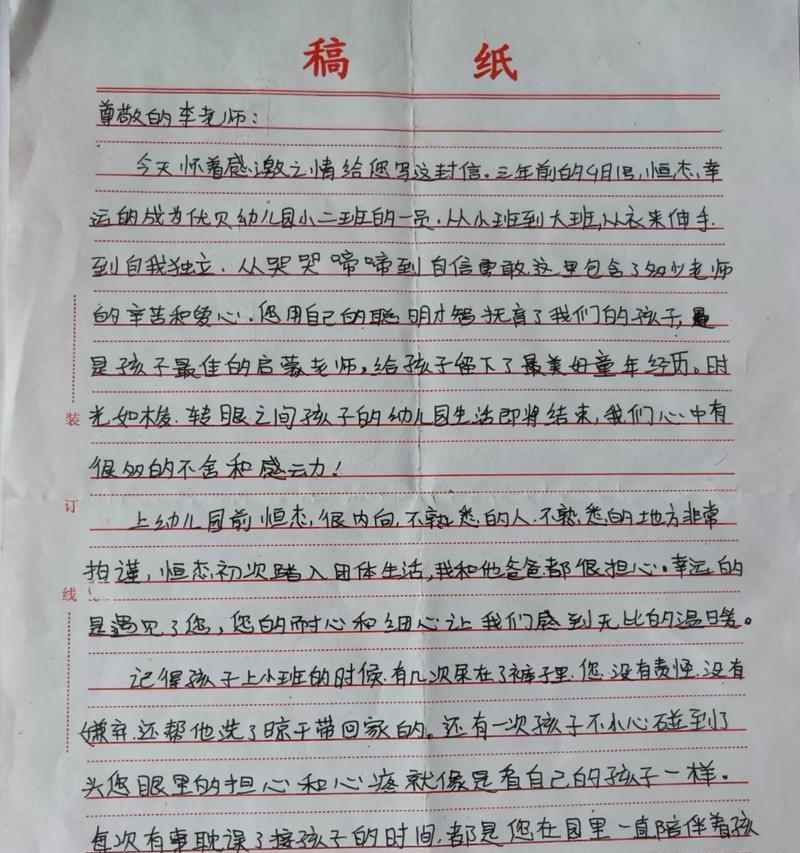 稿 纸
尊敬的李老师:
今天怀着感激之情给您写这封信.三年前的9月1号,恒杰,幸
运的成为优贝幼儿园小二班的一员.从小班到大班,从衣来伸手
到自我独立.从哭哭啼啼到自信勇敢.这里包含了多少老师
的辛苦和爱心.您用自己的聪明才智抚育了我们的孩子,
是孩子最佳的启蒙老师,给孩子留下了最美好童年经历。时
光如梭.转眼之间孩子的幼儿园生活即将结束,我们心中有
很多的不舍和感动!
上幼儿园前恒杰,很内向,不熟悉的人.不熟悉的地方非常
拘谨,恒杰初次踏入团体生活,我和他爸爸都很担心。幸运的
是遇见了您,您的耐心和细心让我们感到无比的温暖。
记得孩子上小班的时候.有几次尿在了裤子里.您.没有责怪.没有
嫌弃.还帮他洗了晾干带回家的。还有一次孩子不小心碰到了
头您眼里的担心和心疼就像是看自己的孩子一样。
每次有事耽误了接孩子的时间,都是您在园里一直陪伴着孩
装
订
线